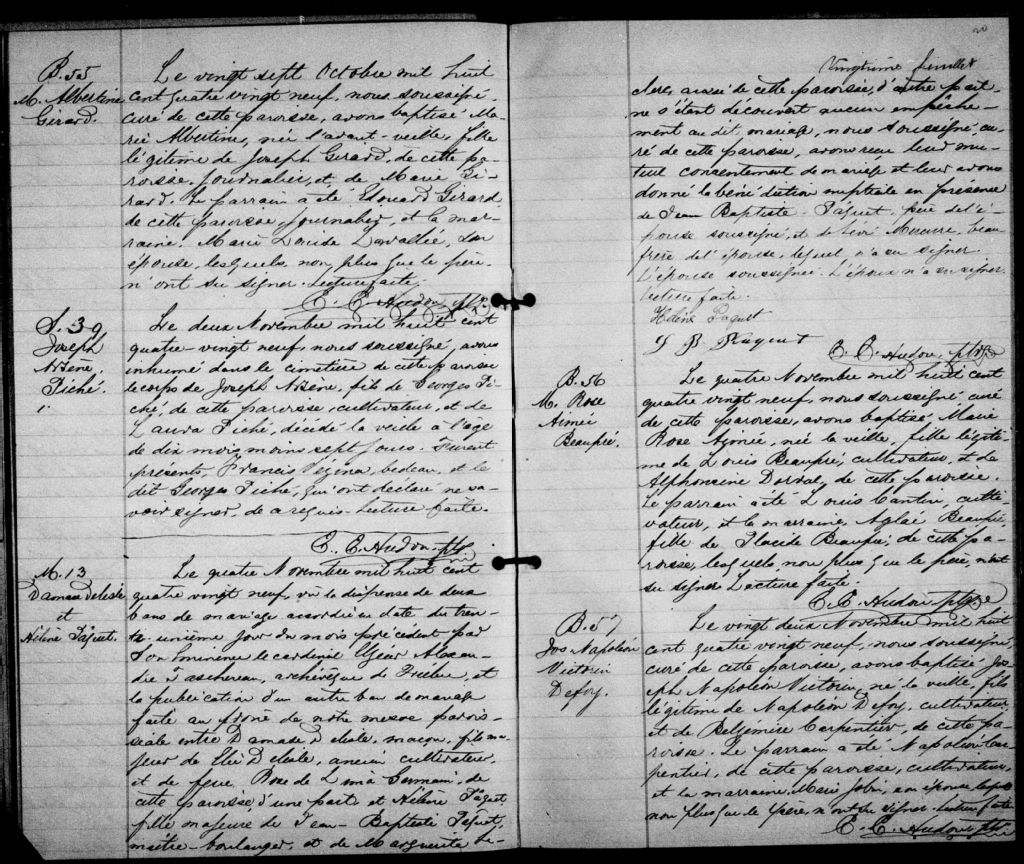 B. 55
M. Albertine
Gerard.
Le vingt sept Octobre mil huit
cent quatre vingt neuf, nous soussigné,
curé de cette paroisse, avons baptisé Ma-
rie Albertine, née l'avant-veille, fille
légitime de Joseph Gerard, de cette pa-
roisse, journalier, et de Marie Gi-
rard. Le parrain a été Edouard Gerard,
de cette paroisse, journalier, et la mar-
raine, Marie Louise Lavallée, son
épouse, lesquels non plus que le père
n'ont su signer. Lecture faite.
E. E. Hudon, ptre
S. 39
Joseph
Arsène
Piché.
1.
Le deux Novembre mil huit cent
quatre-vingt neuf, nous soussigné, avons
inhumé dans le cimetière de cette paroisse
le corps de Joseph Arsène, fils de Georges Pi-
ché, de cette paroisse, cultivateur, et de
Laura Piché, décédé la veille à l'age
de dix mois moins sept jours. Furent
présents, Francis Vézina, bedeau, et le
dit Georges Piché, qui ont déclaré ne sa-
voir signer, de ce requis. Lecture faite.
E. E. Hudon, ptre
M. 13
Damase Delisle
et
Hélène Paquet.
Le quatre Novembre mil huit cent
quatre vingt neuf, vu la dispense de deux
bans de mariage accordée en date du tren-
te-unième jour du mois précédent par
Son Eminence le cardinal Elzéar Alexan-
dre Taschereau, archevêque de Québec, et
la publication d'un autre ban de mariage
faite au prône de notre messe parois-
siale entre Damase Delisle, maçon, fils ma-
jeur de Delisle, ancien cultivateur,
et de feue Rose de Lima Germain, de
cette paroisse, d'une part; et Hélène Paquet
fille majeure de Jean-Baptiste Paquet,
maître-boulanger, et de Marguerite
20
Vingtième feuillet
aussi de cette paroisse, d'autre part;
ne s'étant découvert aucun empêche-
ment au dit mariage, nous soussigné, cu-
ré de cette paroisse, avons reçu leur mu-
tuel consentement de mariage et leur avons
donné la bénédiction nuptiale en présence
de Jean Baptiste Paquet, père de l'é-
pouse soussigné, et de beau
frère de l'épouse, lequel n'a su signer.
L'épouse soussignée. L'époux n'a su signer.
Lecture faite.
Hélène Paquet
J B Paquet
E. E. Hudon, ptre
B. 56
M. Rose
Aimée
Beaupré.
Le quatre Novembre mil huit cent
quatre vingt neuf, nous soussigné, curé
de cette paroisse, avons baptisé Marie
Rose Aimée, née la veille, fille légiti-
me de Louis Beaupré, cultivateur, et de
Alphonsine Dorval, de cette paroisse.
Le parrain a été Louis Cantin, culti-
vateur, et la marraine, Aglaé Beaupré,
fille de Placide Beaupré, de cette pa-
roisse, lesquels non plus que le père, n'ont
su signer Lecture faite.
E. E. Hudon ptre
B. 57
Jos Napoléon
Victorin
Defoy.
Le vingt deux Novembre mil huit
cent quatre vingt neuf, nous soussigné,
curé de cette paroisse, avons baptisé Jos-
eph Napoléon Victorin, né la veille, fils
légitime de Napoléon Defoy, cultivateur,
et de Belzémire Carpentier, de cette pa-
roisse. Le parrain a été Napoléon Car-
pentier, de cette paroisse, cultivateur,
et la marraine, Marie Jobin, son épouse, lesquels
non plus que le père, n'ont su signer. Lecture faite
E. E. Hudon ptre